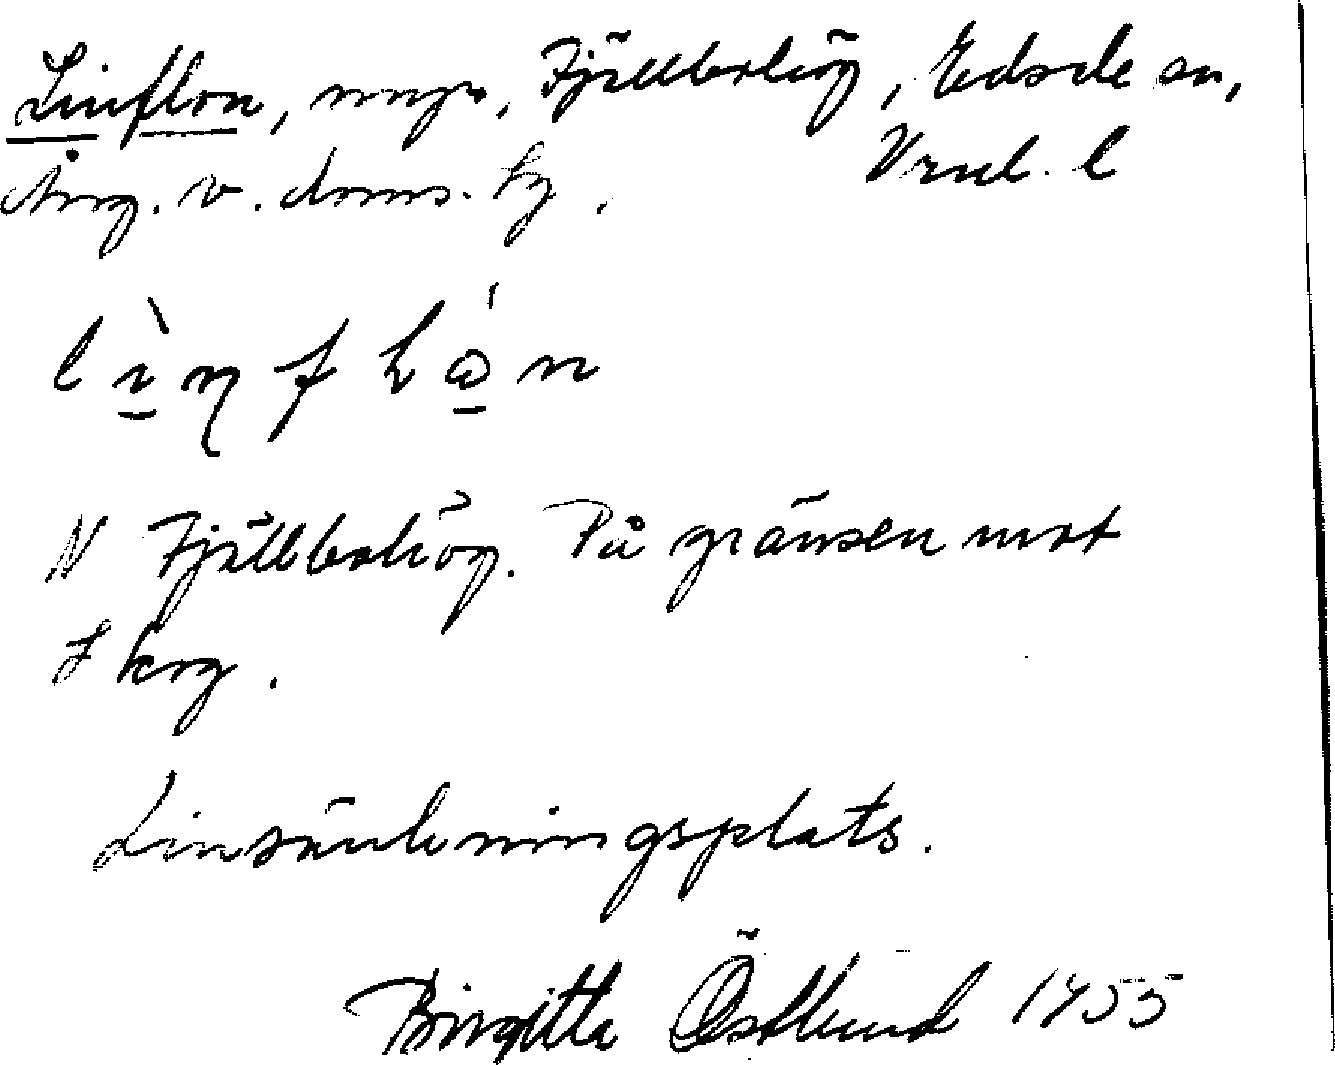 Linflon, myr, Fjällbohög, Edsele sn,
Ång. v. doms. hg. Vrul. l
lìnflón
N Fjällbohög. På gränsen mot
Skog.
Linsänkningsplats.
Birgitta Östlund 1955